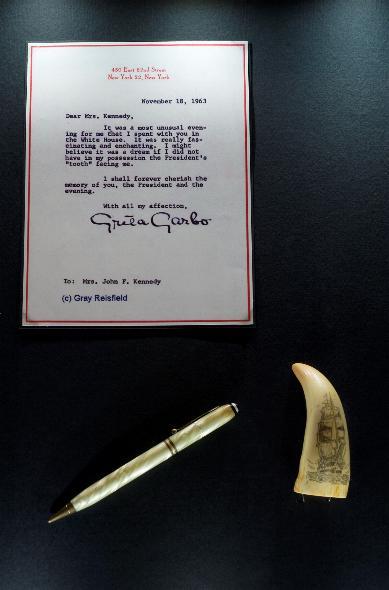 450 East 52nd Street
New York 22, New York
November 18, 1963
Dear Mrs. Kennedy,
It was a most unusual even-
ing for me that I spent with you in
the White House. It was really fas-
cinating and enchanting. I might
believe it was a dream if I did not
have in my possession the President's
"tooth" facing me.
I shall forever cherish the
memory of you, the President and the
evening.
With all my affection,
Greta Garbo
To: Mrs. John F. Kennedy
(c) Gray Reisfield